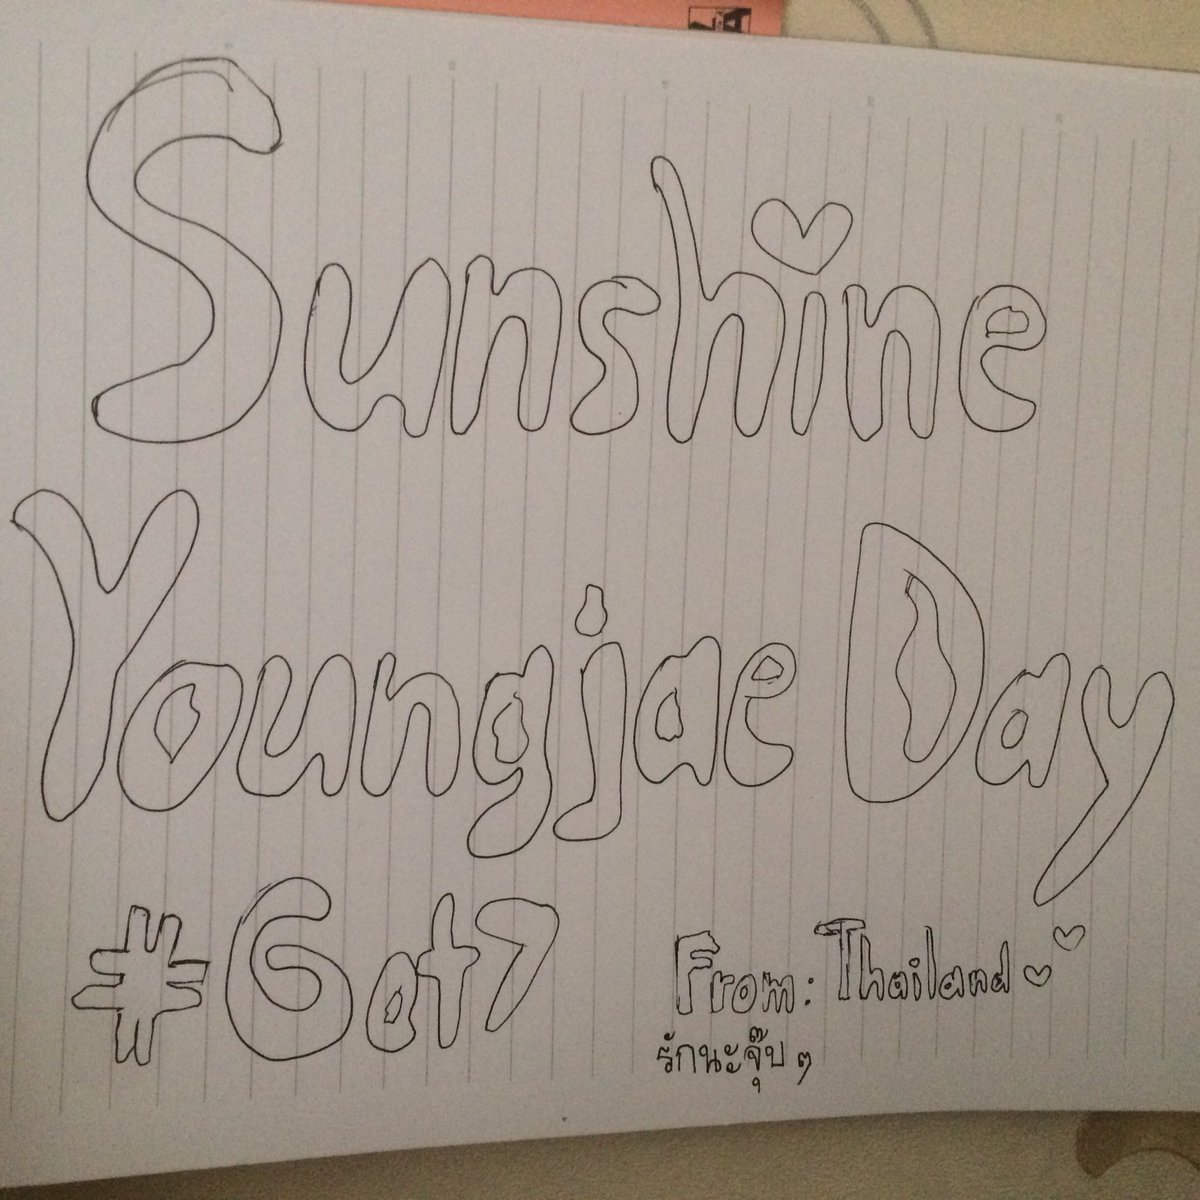 Sunshine
Youngjae Day
#Got7
From: Thailand
รักนะจุ๊บๆ